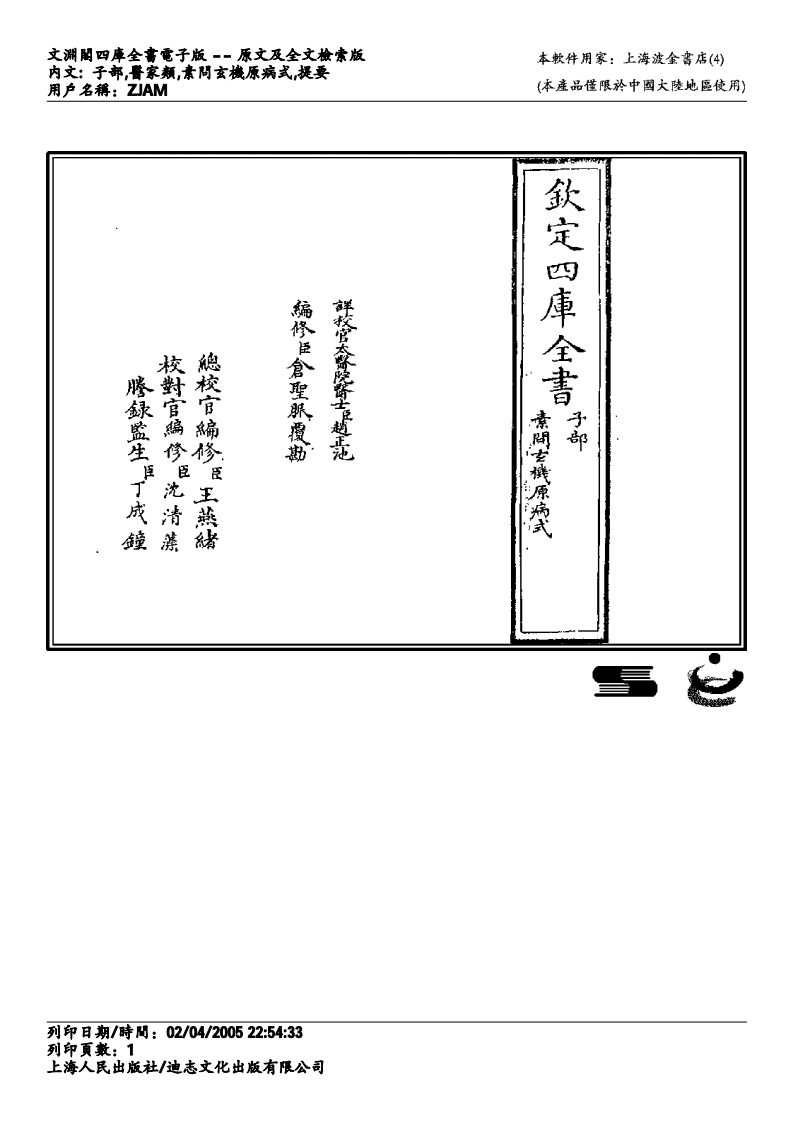 文淵閣四庫全書電子版 -- 原文及全文檢索版
内文: 子部,醫家類,素問玄機原病式,提要
用戶名稱: ZJAM
本軟件用家: 上海波金書店(4)
(本產品僅限於中國大陸地區使用)
欽定四庫全書
子部
素問玄機原病式
詳校官太醫院醫士臣趙正池
編修臣倉聖脈覆勘
總校官編修臣王燕緒
校對官編修臣沈清藻
謄錄監生臣丁成鐘
列印日期/時間: 02/04/2005 22:54:33
列印頁數: 1
上海人民出版社/迪志文化出版有限公司